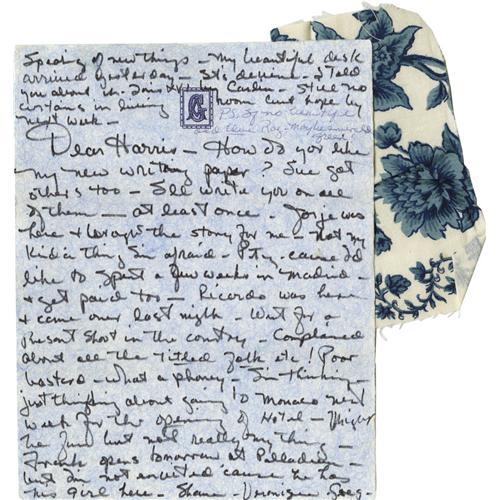 Speaking of new things - My beautiful desk
arrived yesterday - It's devine - I told
you about it - Still no
curtains in living room but hope by
next week -
G
P.S.
Dear Harris - How do you like
my new writing paper? I've got
others too - I'll write you on all
of them - at least once - Jorge was
here & brought the story for me - Not my
kind a thing I'm afraid - Pity - cause I'd
like to spent a few weeks in Madrid
& get paid too - Ricardo was here
& came over last night - Went for a
Pheasant Shoot in the country - Complained
about all the titled folk etc! Poor
bastard - What a phoney - I'm thinking -
just thinking about going to Monaco next
week for the opening of Hotel - Might
be fun but not really my thing -
Frank opens tomorrow at Palladium -
but I'm not invited cause he has
his girl here - Shame